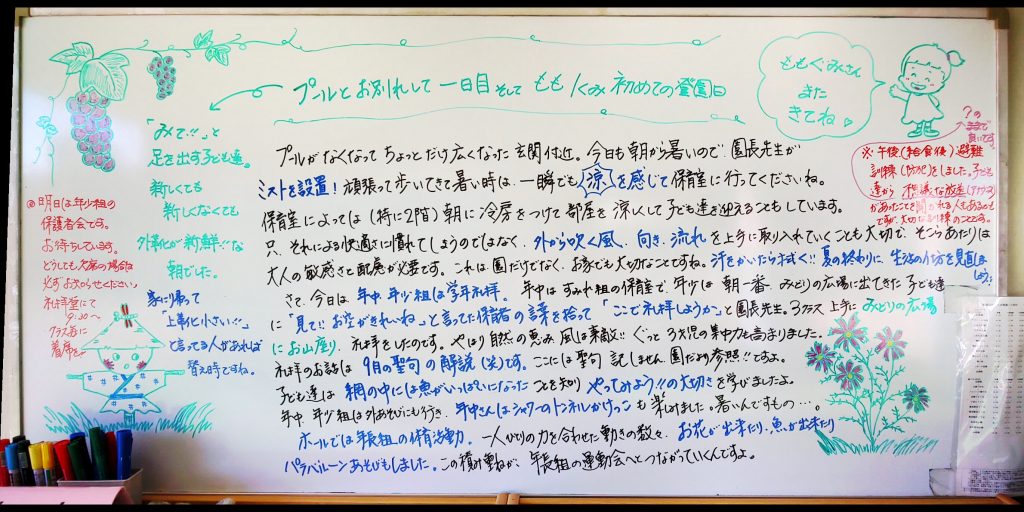 プールとお別れして一日目そしてももぐみ初めての登園日
ももぐみさん
また
きてね
「みて!!」と
足を出す子ども達。
新しくても
新しくなくても
外靴が新鮮!!な
朝でした。
家に帰って
「上靴小さい!!」
と言ってる人があれば
替え時ですね。
◎明日は年少組の
保護者会です。
お待ちしています。
どうしても欠席の場合は
必ずお知らせください。
礼拝堂にて
9:30〜
クラス毎に
着席を
プールがなくなってちょっとだけ広くなった玄関付近。今日も朝から暑いので園長先生が
ミストを設置!頑張って歩いてきて暑い時は、一瞬でも涼を感じて保育室に行ってくださいね。
保育室によっては(特に2階)朝に冷房をつけて部屋を涼しくして子ども達を迎えることもしています。
只、それによる快適さに慣れてしまうのではなく、外から吹く風、向き、流れを上手に取り入れていくことも大切で、そこらあたりは
大人の敏感さと配慮が必要です。これは園だけでなく、お家でも大切なことですね。汗をかいたら拭く!!夏の終わりに生活の仕方を見直しましょう!
さて、今日は年中、年少組は学年礼拝。年中はすみれ組の保育室で、年少は朝一番、みどりの広場に出てきた子ども達
に「見て!!お空がきれいね」と言ってた保育者の言葉を拾って「ここで礼拝しようか」と園長先生。3クラス上手にみどりの広場
にお山座り、礼拝をしたのです。やはり自然の恵み、風は素敵!!ぐっと3才児の集中力も高まりました。
礼拝のお話は9月の聖句の解説(笑)です。ここには聖句記しません。園だより参照!!ですよ。
子ども達は網の中には魚がいっぱいになったことを知り、やってみよう!!の大切さを学びましたよ。
年中、年少組は外あそびにも行き、年中さんはシャワーのトンネルかけっこも楽しめました。暑いんですもの…。
ホールでは年長組の保育活動。一人ひとりの力を合わせた動きの数々、お花が出来たり、魚が出来たり
パラバルーンあそびもしました。この積み重ねが、年長組の運動会へとつながっていくんですよ。
※午後(給食後)避難
訓練(防犯)をしました。子ども
達から不思議な放送
があったことを聞かれる人もあるかも
ですが、大切な訓練のことです。